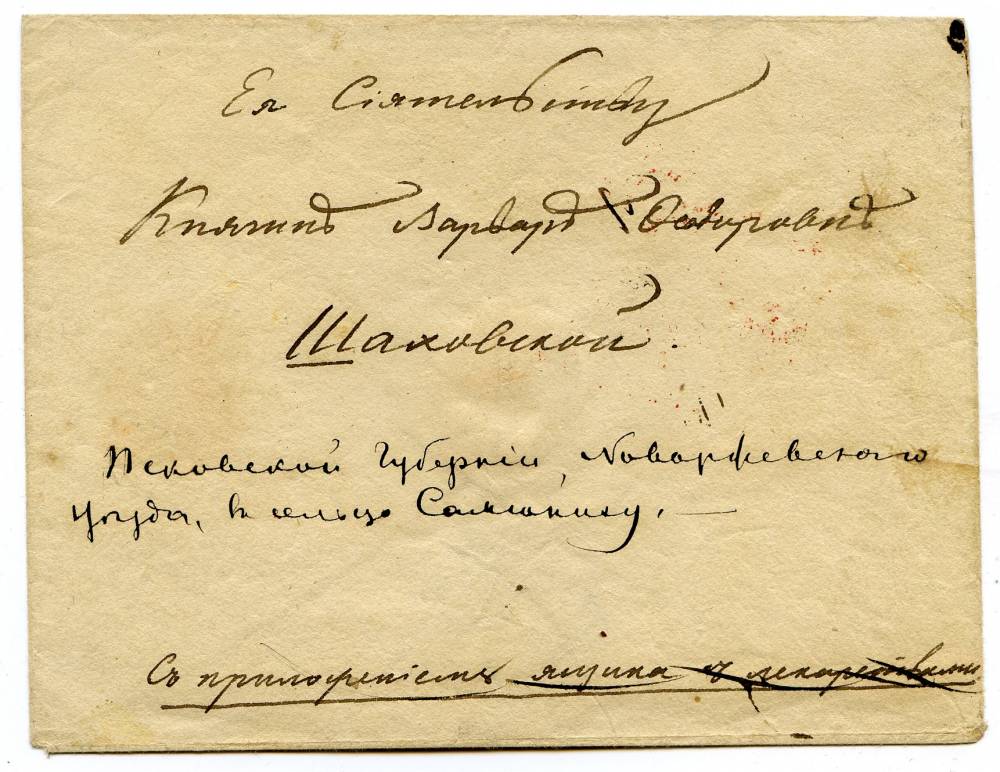 Ея Сіятельству
Княгинѣ Варварѣ Ѳедоровнѣ
Шаховской.
Псковской Губерніи, Новоржевскаго
уѣзда, въ сельцо
Съ приложеніемъ ящика съ лекарствами